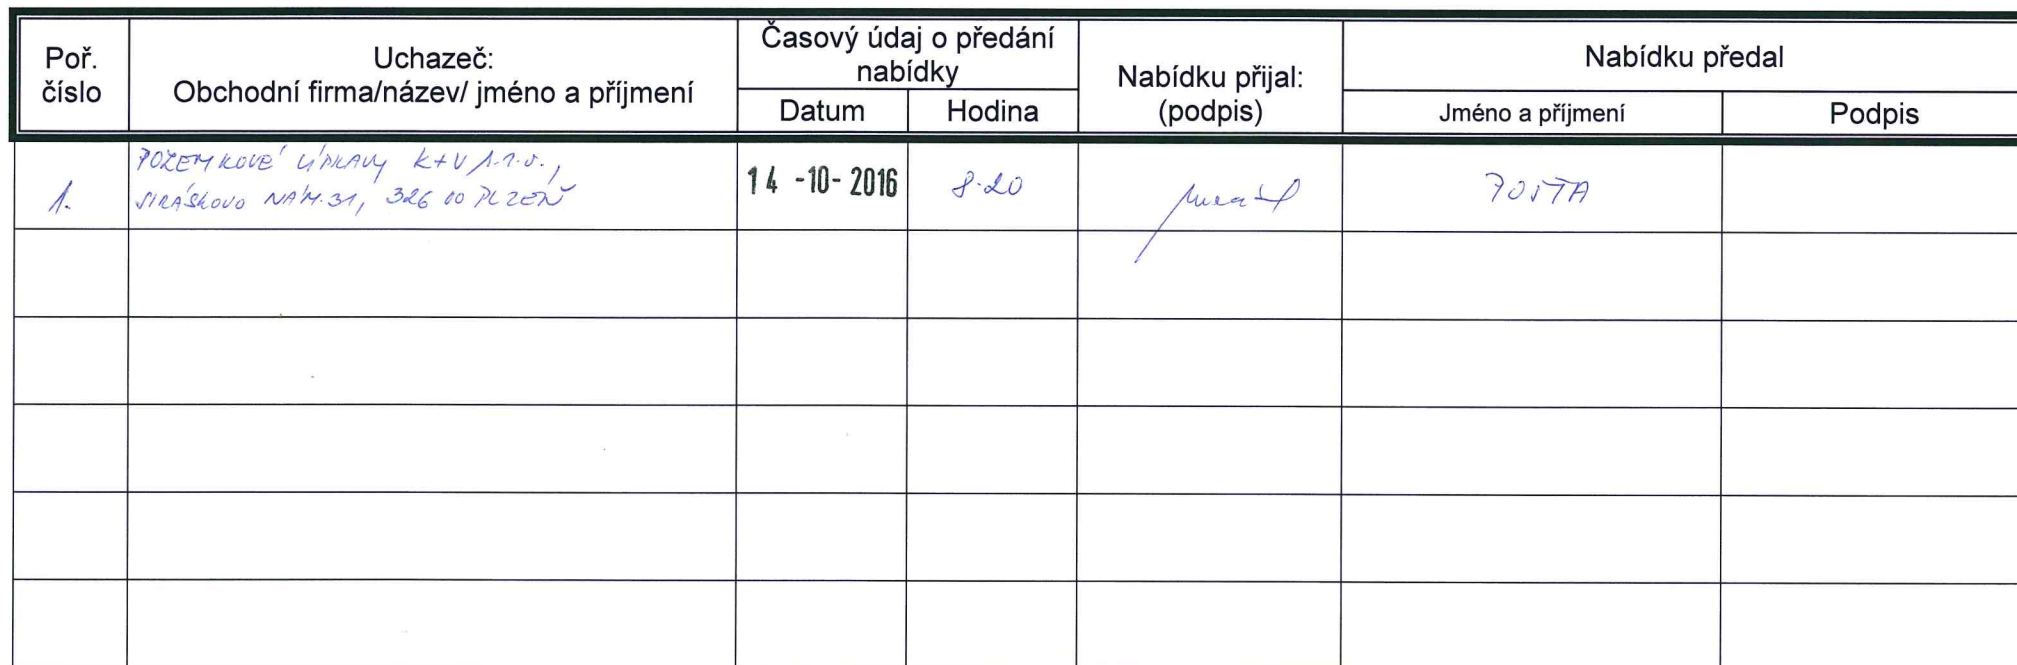 Poř.
číslo
Uchazeč:
Obchodní firma/název/ jméno a příjmení
Časový údaj o předání
nabídky
Datum
Hodina
Nabídku přijal:
(podpis)
Nabídku předal
Jméno a příjmení
Podpis
1.
POZEMKOVÉ ÚPRAVY K+V s.r.o.,
JIRÁSKOVO NÁM. 31, 326 00 PLZEŇ
14 -10- 2016
8.20
POŠTA